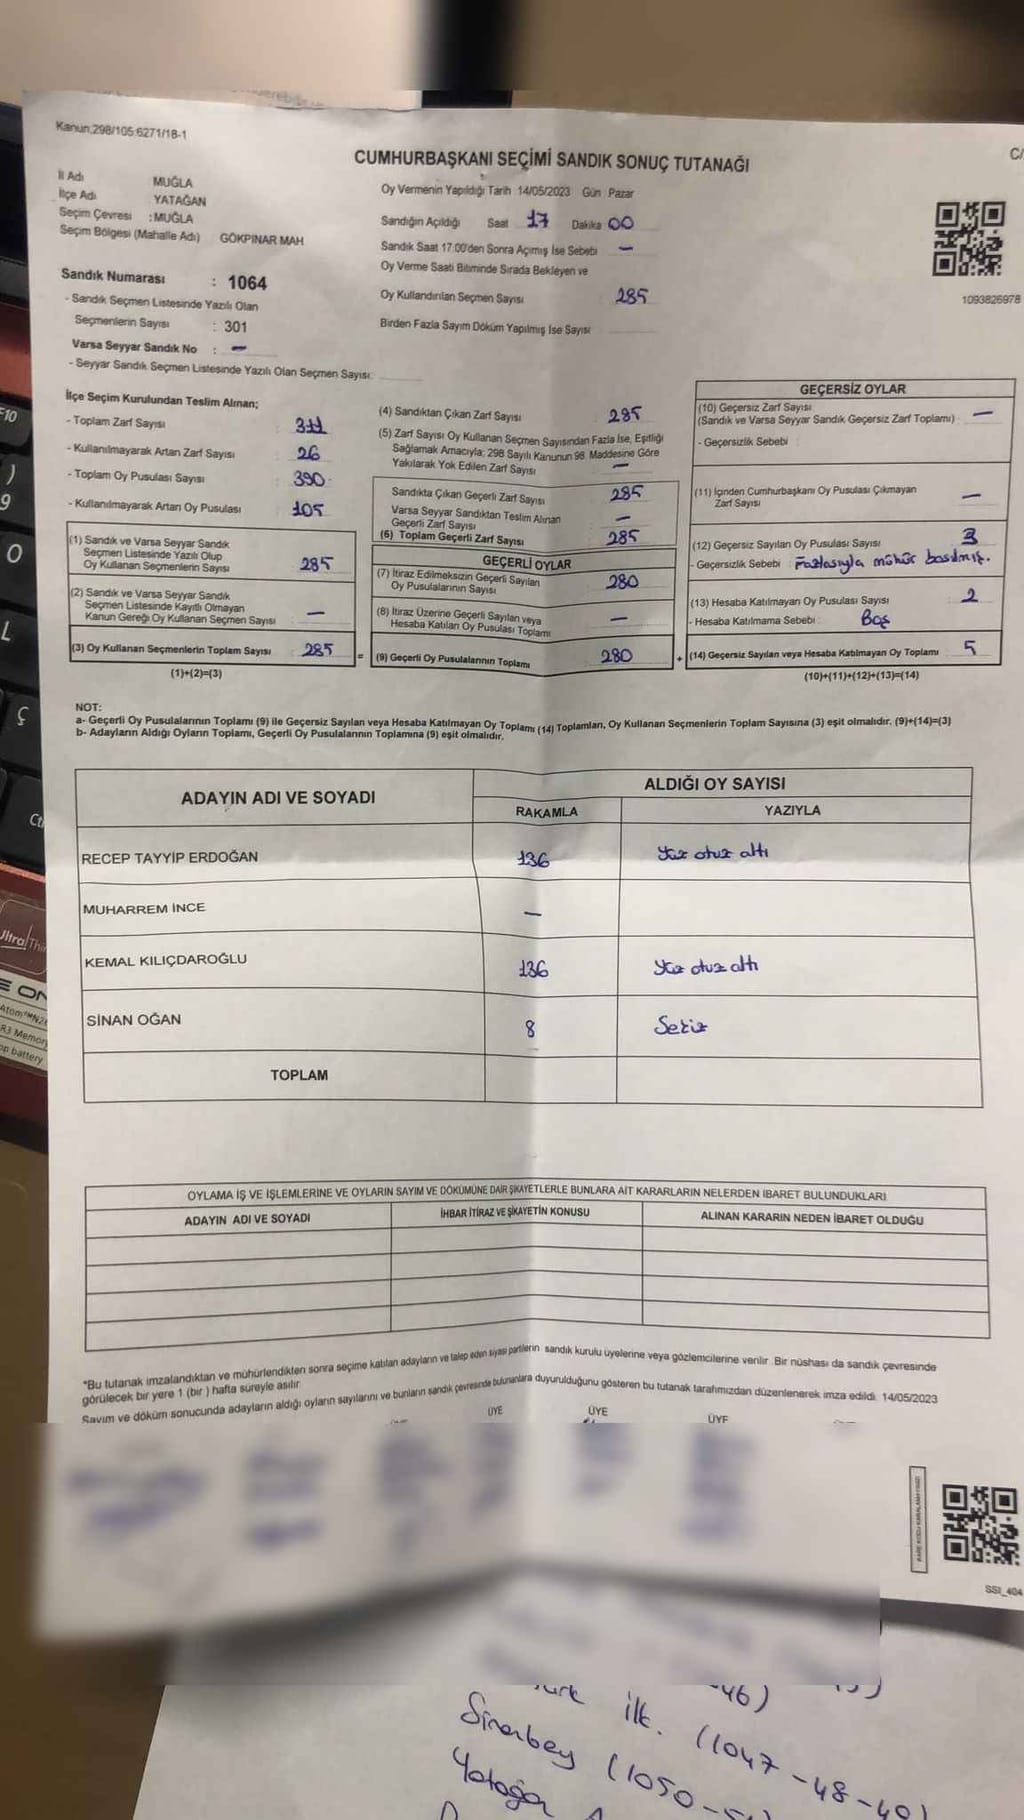 Kanun.298/105.6271/18-1
C/
CUMHURBAŞKANI SEÇİMİ SANDIK SONUÇ TUTANAĞI
İl Adı MUĞLA
İlçe Adı YATAĞAN
Seçim Çevresi : MUĞLA
Seçim Bölgesi (Mahalle Adı) GÖKPINAR MAH
Oy Vermenin Yapıldığı Tarih 14/05/2023 Gün Pazar
Sandığın Açıldığı Saat 17 Dakika 00
Sandık Saat 17.00'den Sonra Açımış İse Sebebi —
Oy Verme Saati Bitiminde Sırada Bekleyen ve
Oy Kullandırılan Seçmen Sayısı 285
Birden Fazla Sayım Döküm Yapılmış İse Sayısı
1093826978
Sandık Numarası : 1064
- Sandık Seçmen Listesinde Yazılı Olan
Seçmenlerin Sayısı : 301
Varsa Seyyar Sandık No : —
- Seyyar Sandık Seçmen Listesinde Yazılı Olan Seçmen Sayısı:
İlçe Seçim Kurulundan Teslim Alınan;
- Toplam Zarf Sayısı 311
- Kullanılmayarak Artan Zarf Sayısı 26
- Toplam Oy Pusulası Sayısı 390
- Kullanılmayarak Artan Oy Pusulası 105
(1) Sandık ve Varsa Seyyar Sandık
Seçmen Listesinde Yazılı Olup
Oy Kullanan Seçmenlerin Sayısı 285
(2) Sandık ve Varsa Seyyar Sandık
Seçmen Listesinde Kayıtlı Olmayan
Kanun Gereği Oy Kullanan Seçmen Sayısı —
(3) Oy Kullanan Seçmenlerin Toplam Sayısı 285 =
(1)+(2)=(3)
(4) Sandıktan Çıkan Zarf Sayısı 285
(5) Zarf Sayısı Oy Kullanan Seçmen Sayısından Fazla İse, Eşitliği
Sağlamak Amacıyla; 298 Sayılı Kanunun 98. Maddesine Göre
Yakılarak Yok Edilen Zarf Sayısı —
Sandıkta Çıkan Geçerli Zarf Sayısı 285
Varsa Seyyar Sandıktan Teslim Alınan
Geçerli Zarf Sayısı —
(6) Toplam Geçerli Zarf Sayısı 285
GEÇERLİ OYLAR
(7) İtiraz Edilmeksizin Geçerli Sayılan
Oy Pusulalarının Sayısı 280
(8) İtiraz Üzerine Geçerli Sayılan veya
Hesaba Katılan Oy Pusulası Toplamı —
(9) Geçerli Oy Pusulalarının Toplamı 280 +
GEÇERSİZ OYLAR
(10) Geçersiz Zarf Sayısı
(Sandık ve Varsa Seyyar Sandık Geçersiz Zarf Toplamı) : —
- Geçersizlik Sebebi :
(11) İçinden Cumhurbaşkanı Oy Pusulası Çıkmayan
Zarf Sayısı —
(12) Geçersiz Sayılan Oy Pusulası Sayısı 3
- Geçersizlik Sebebi : Fazlasıyla mühür basılmış.
(13) Hesaba Katılmayan Oy Pusulası Sayısı 2
- Hesaba Katılmama Sebebi : Boş
(14) Geçersiz Sayılan veya Hesaba Katılmayan Oy Toplamı 5
(10)+(11)+(12)+(13)=(14)
NOT:
a- Geçerli Oy Pusulalarının Toplamı (9) ile Geçersiz Sayılan veya Hesaba Katılmayan Oy Toplamı (14) Toplamları, Oy Kullanan Seçmenlerin Toplam Sayısına (3) eşit olmalıdır. (9)+(14)=(3)
b- Adayların Aldığı Oyların Toplamı, Geçerli Oy Pusulalarının Toplamına (9) eşit olmalıdır.
ADAYIN ADI VE SOYADI
ALDIĞI OY SAYISI
RAKAMLA YAZIYLA
RECEP TAYYİP ERDOĞAN 136 Yüz otuz altı
MUHARREM İNCE —
KEMAL KILIÇDAROĞLU 136 Yüz otuz altı
SİNAN OĞAN 8 Sekiz
TOPLAM
OYLAMA İŞ VE İŞLEMLERİNE VE OYLARIN SAYIM VE DÖKÜMÜNE DAİR ŞİKAYETLERLE BUNLARA AİT KARARLARIN NELERDEN İBARET BULUNDUKLARI
ADAYIN ADI VE SOYADI İHBAR İTİRAZ VE ŞİKAYETİN KONUSU ALINAN KARARIN NEDEN İBARET OLDUĞU
*Bu tutanak imzalandıktan ve mühürlendikten sonra seçime katılan adayların ve talep eden siyasi partilerin sandık kurulu üyelerine veya gözlemcilerine verilir. Bir nüshası da sandık çevresinde
görülecek bir yere 1 (bir ) hafta süreyle asılır.
Sayım ve döküm sonucunda adayların aldığı oyların sayılarını ve bunların sandık çevresinde bulunanlara duyurulduğunu gösteren bu tutanak tarafımızdan düzenlenerek imza edildi. 14/05/2023
ÜYE ÜYE ÜYE
SSI_404
46)
ilk. (1047-48-
Sinanbey (1050-
Yatağan
F10
)
9
O
L
Ç
Ultra Thin
Memory
battery